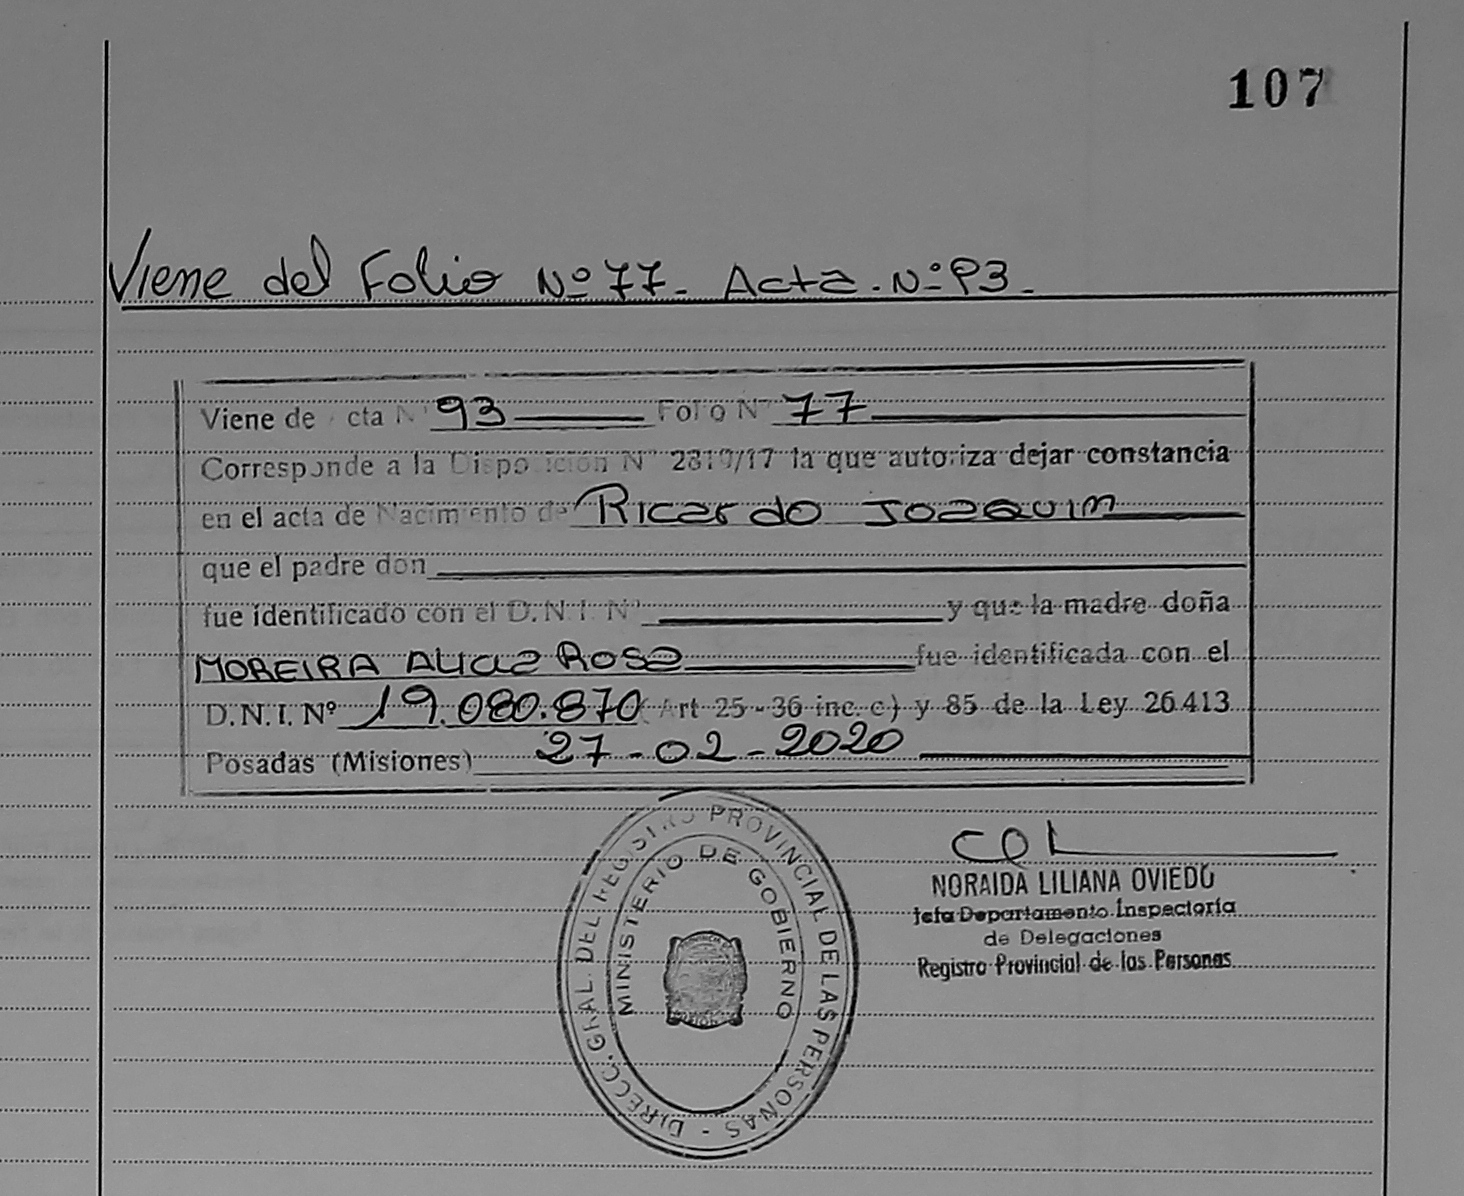 107
Viene del Folio Nº 77- Acta. Nº 93-
Viene de cta N 93 Folio Nº 77
Corresponde a la Disposición Nº 2819/17 la que autoriza dejar constancia
en el acta de Nacimiento de Ricardo JOAQUIN
que el padre don
fue identificado con el D.N.I. Nº y que la madre doña
MOREIRA ALICIA ROSA fue identificada con el
D.N.I. Nº 19.080.870 (Art 25-36 inc. c) y 85 de la Ley 26.413
Posadas (Misiones) 27-02-2020
DIRECC. GRAL. DEL REGISTRO PROVINCIAL DE LAS PERSONAS -
MINISTERIO DE GOBIERNO
NORAIDA LILIANA OVIEDO
Jefa Departamento Inspectoría
de Delegaciones
Registro Provincial de las Personas